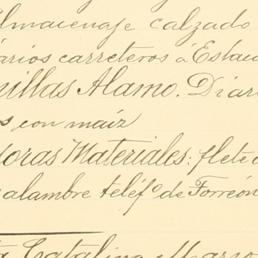 almacenaje calzado
arios carreteros á Estac
illas Alamo. Diari
s con maíz
oras Materiales: flete d
alambre teléfº de Torreón
a Catalina Marso